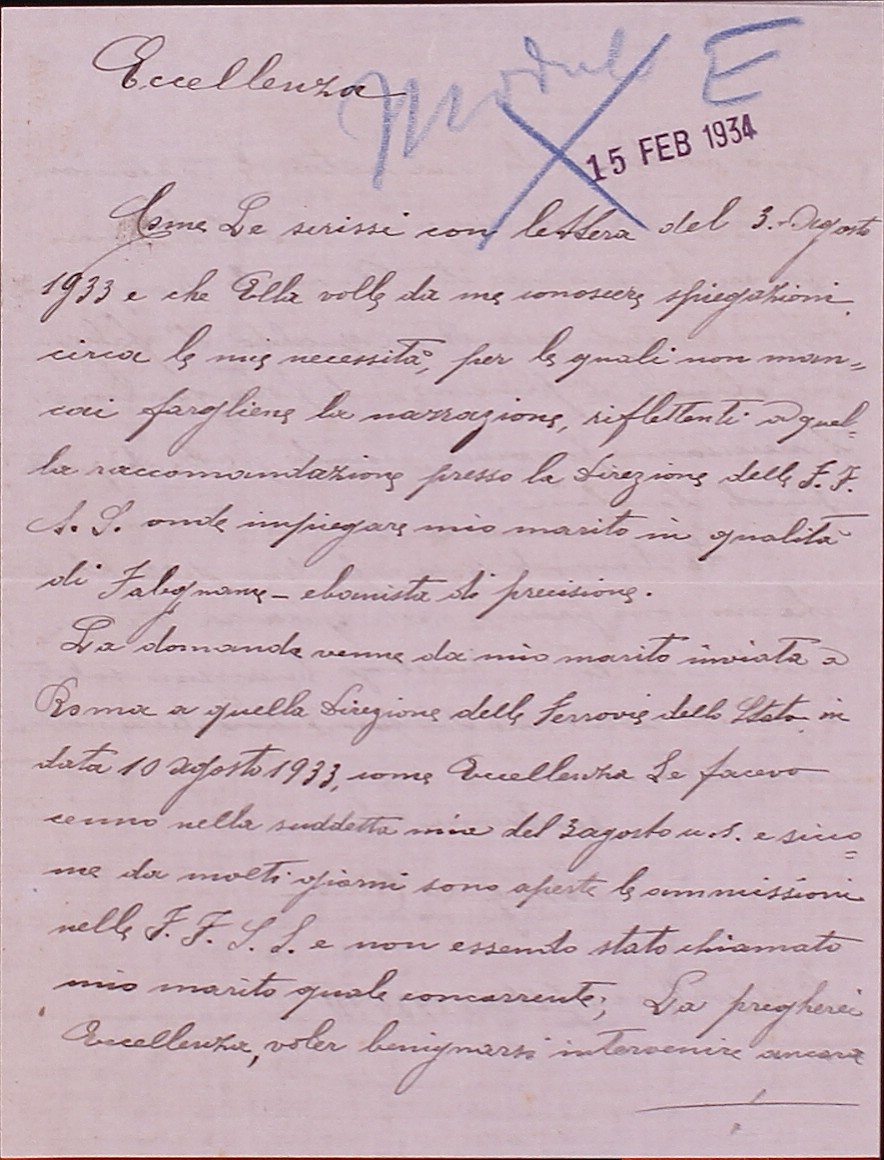 Eccellenza
Modulo E
15 FEB 1934
Come Le scrissi con lettera del 3. Agosto
1933 e che Ella volle da me conoscere spiegazioni
circa le mie necessità, per le quali non man=
cai fargliene la narrazione, riflettenti a quel=
la raccomandazione presso la Direzione delle F. F.
S. S. onde impiegare mio marito in qualità
di Falegname - ebanista di precisione.
La domanda venne da mio marito inviata a
Roma a quella Direzione delle Ferrovie dello Stato in
data 10 Agosto 1933, come Eccellenza Le facevo
cenno nella suddetta mia del 3 agosto u. s. e sicco=
me da molti giorni sono aperte le ammissioni
nelle F. F. S. S. e non essendo stato chiamato
mio marito quale concorrente; La pregherei
Eccellenza, voler benignarsi intervenire ancora